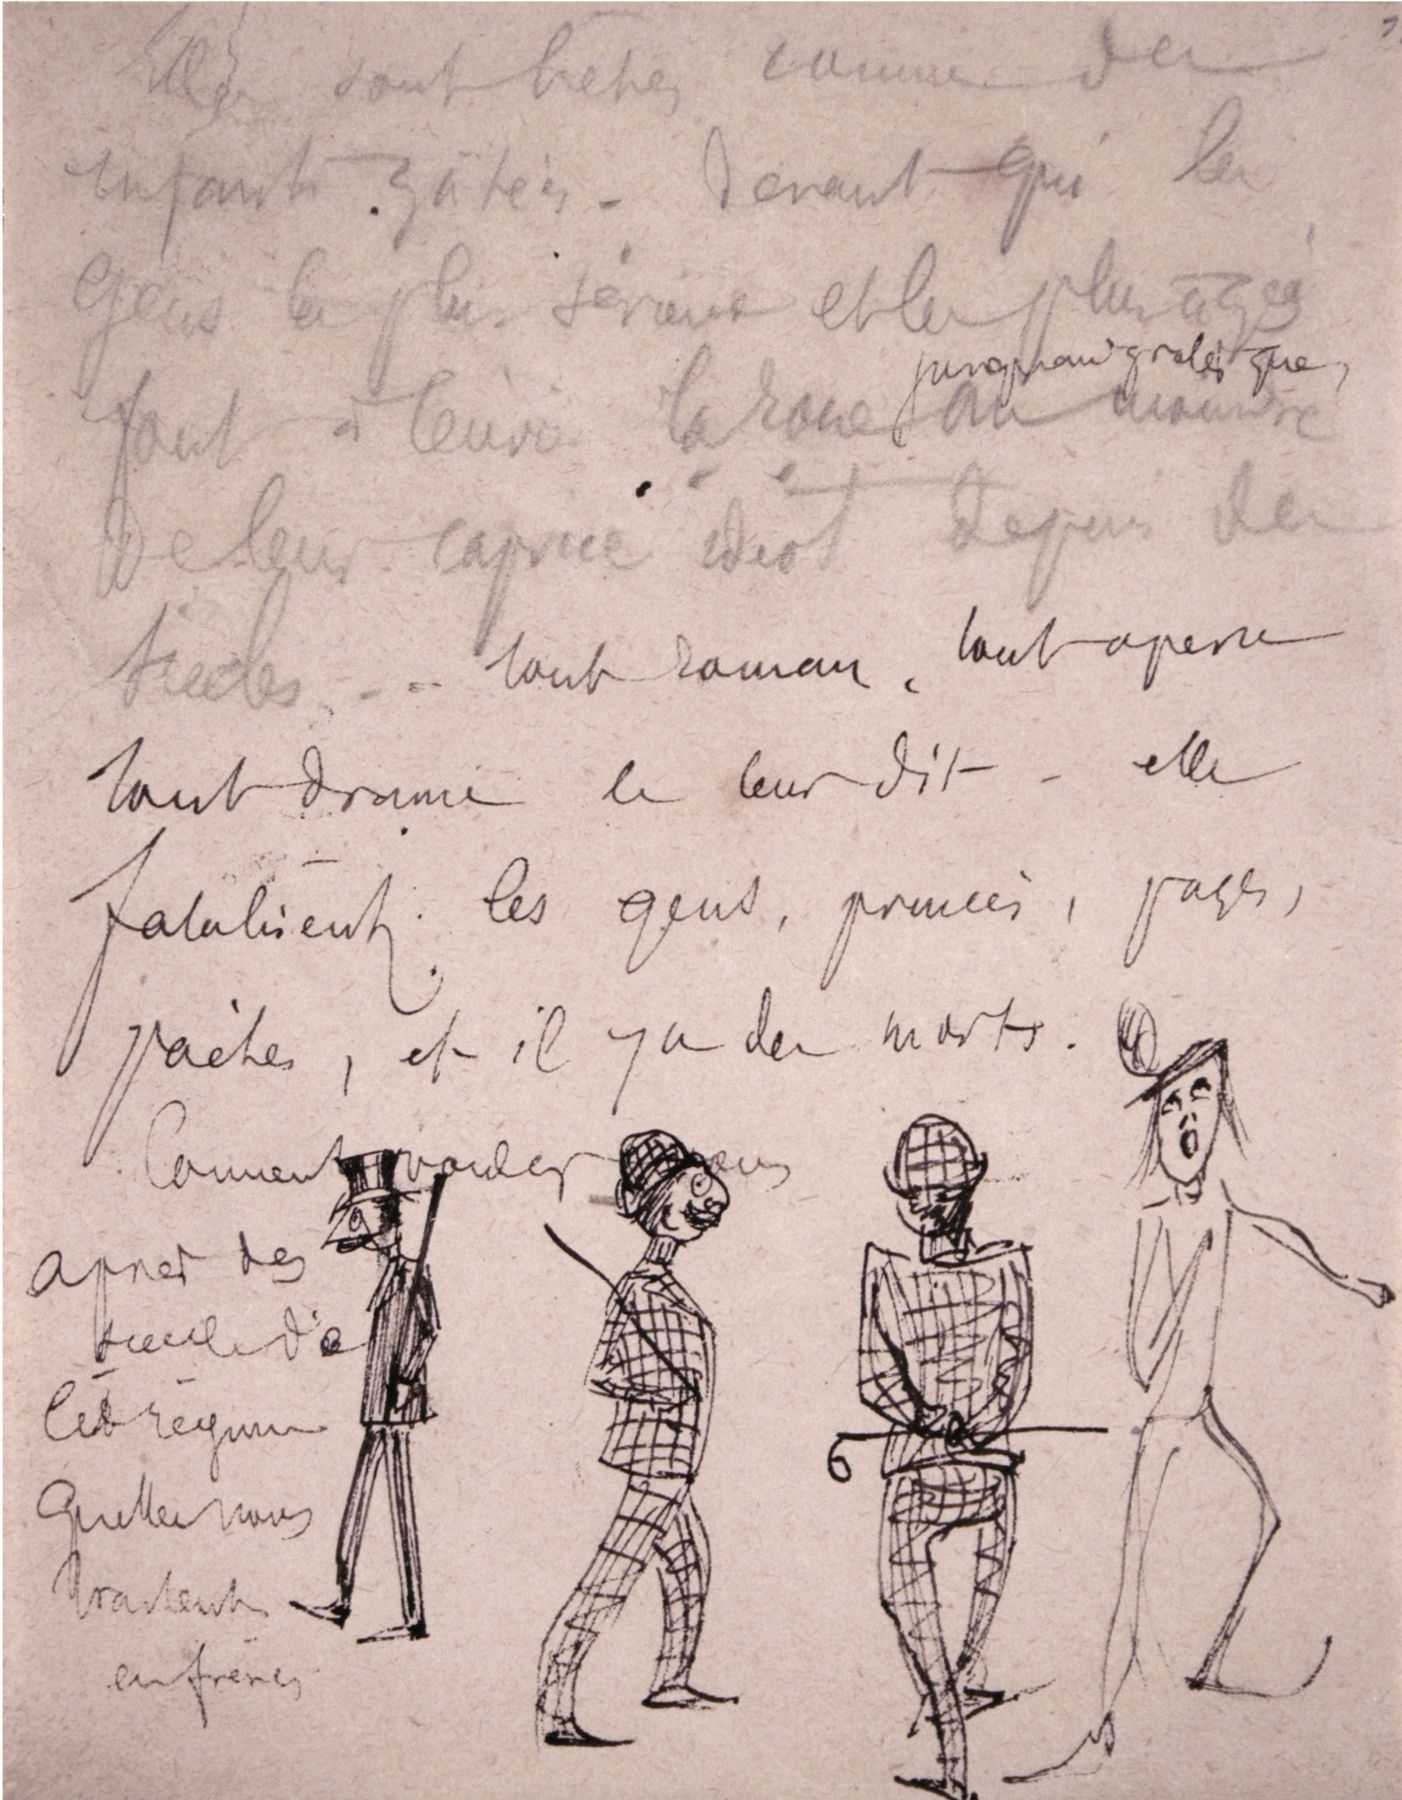 Elles sont bêtes comme des
enfants gâtés - devant qui les
gens les plus sérieux et les plus âgés
font la roue au moindre
de leur caprice idiot depuis des
siècles - - tout roman, tout opera
tout drame le leur dit - elles
fatalisent les gens, princes, pages,
poètes, et il y a des morts.
Comment voulez vous
apres des
siecles d'e
règne
qu'elles nous
traitent
en frères